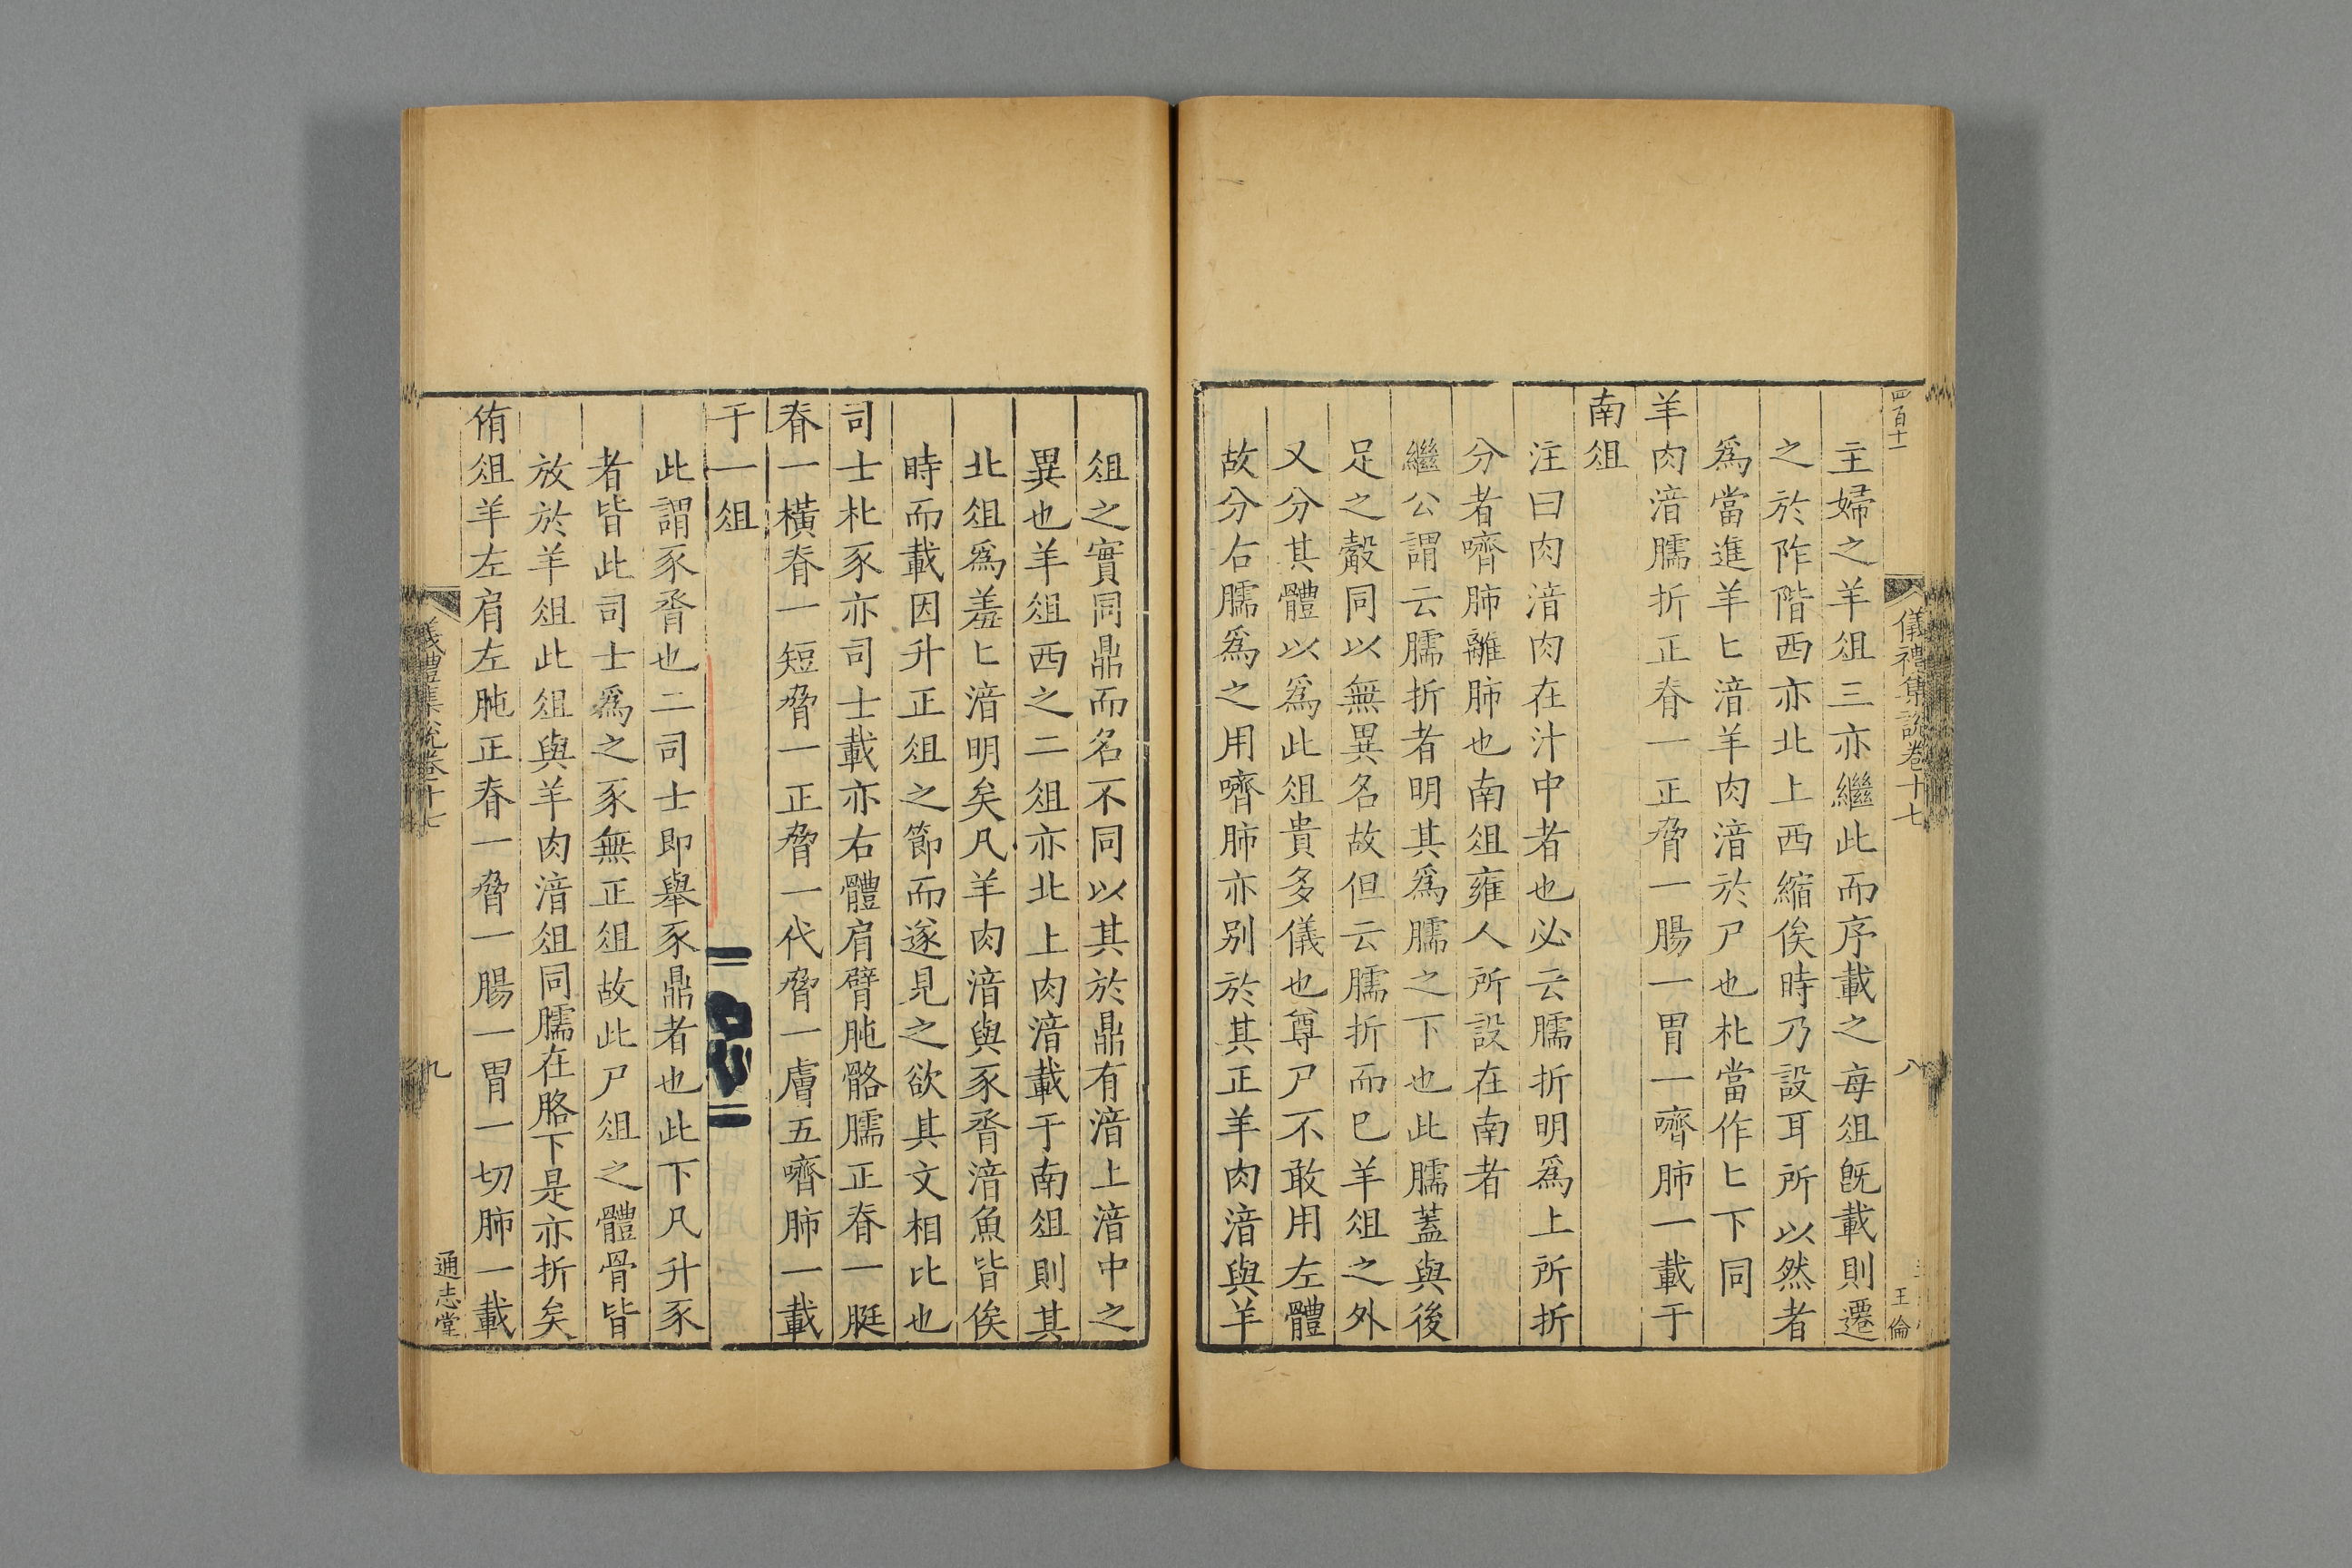 四百十一
儀禮集說卷十七
八
王倫
主婦之羊俎三亦繼此而序載之每俎旣載則遷
之於阼階西亦北上西縮俟時乃設耳所以然者
爲當進羊匕湆羊肉湆於尸也朼當作匕下同
羊肉湆臑折正脊一正脅一腸一胃一嚌肺一載于
南俎
注曰肉湆肉在汁中者也必云臑折明爲上所折
分者嚌肺離肺也南俎雍人所設在南者
繼公謂云臑折者明其爲臑之下也此臑蓋與後
足之觳同以無異名故但云臑折而已羊俎之外
又分其體以爲此俎貴多儀也尊尸不敢用左體
故分右臑爲之用嚌肺亦別於其正羊肉湆與羊
俎之實同鼎而名不同以其於鼎有湆上湆中之
異也羊俎西之二俎亦北上肉湆載于南俎則其
北俎爲羞匕湆明矣凡羊肉湆與豕脀湆魚皆俟
時而載因升正俎之節而遂見之欲其文相比也
司士朼豕亦司士載亦右體肩臂肫骼臑正脊一脡
脊一橫脊一短脅一正脅一代脅一膚五嚌肺一載
于一俎
此謂豕脀也二司士即舉豕鼎者也此下凡升豕
者皆此司士爲之豕無正俎故此尸俎之體骨皆
放於羊俎此俎與羊肉湆俎同臑在胳下是亦折矣
侑俎羊左肩左肫正脊一脅一腸一胃一切肺一載
儀禮集說卷十七
九
通志堂